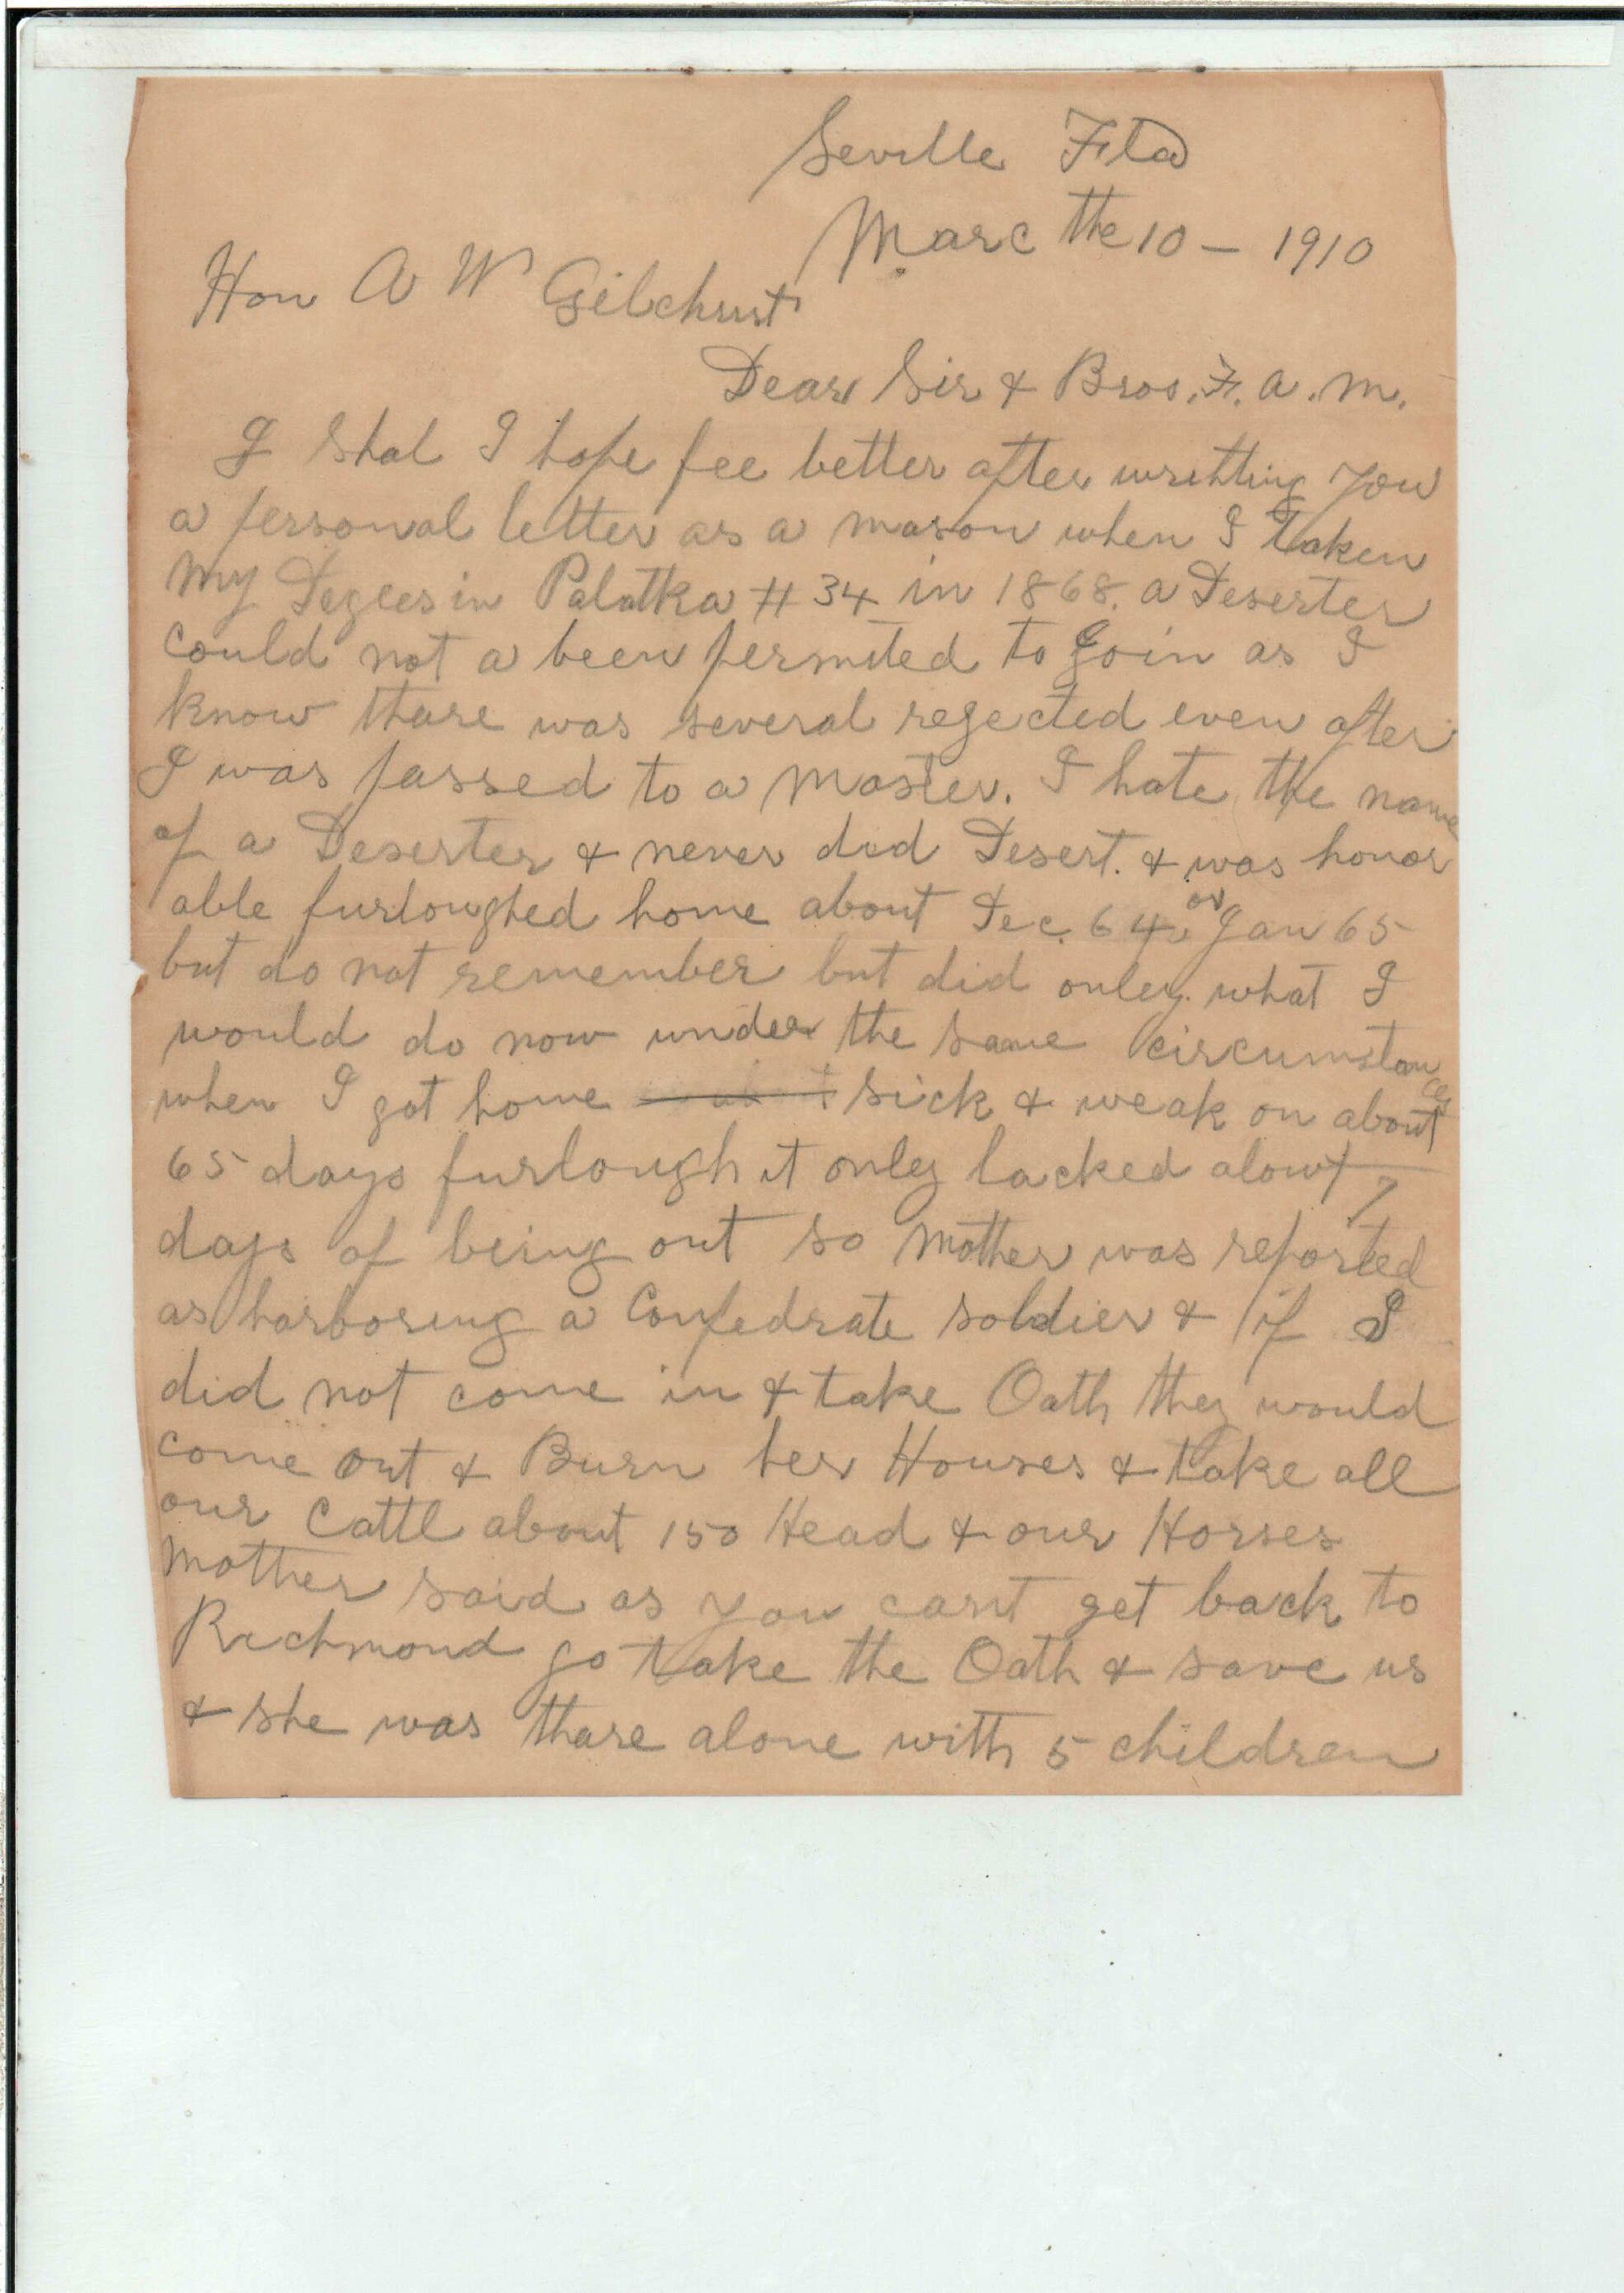 Seville Fla
Marc the 10 – 1910
Hon A W Gilchrist
Dear Sir & Bros. F. A. M.
I Shal I hope fee better after writting you
a personal letter as a mason when I taken
my Degees in Palatka # 34 in 1868. a Deserter
could not a been permited to Join as I
know thare was several regected even after
I was passed to a Master. I hate the name
of a Deserter & never did Desert. & was honor
able furloughed home about Dec. 64, or Jan 65
but do not remember but did onley what I
would do now under the same circumstances
when I got home sick & weak on about
65 days furlough it onley lacked about 7
days of being out so Mother was reported
as harboring a Confedrate soldier & if I
did not come in & take Oath they would
come out & Burn her Houses & take all
our Cattl about 150 Head & our Horses
Mother said as you cant get back to
Richmond go take the Oath & save us
& she was thare alone with 5 children